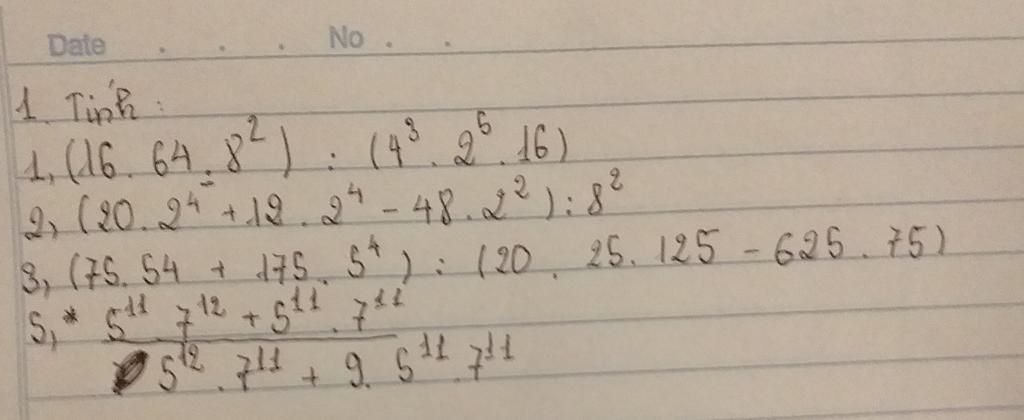 Date . . . No . .
1. Tính :
1, (16 . 64 . 8²) : (4³ . 2⁵ . 16)
2, (20 . 2⁴ + 12 . 2⁴ - 48 . 2²) : 8²
3, (75. 54 + 175. 5⁴) : (20 . 25. 125 - 625. 75)
5, * 5¹¹ 7¹² + 5¹¹ . 7¹¹
5¹² . 7¹¹ + 9. 5¹¹ 7¹¹